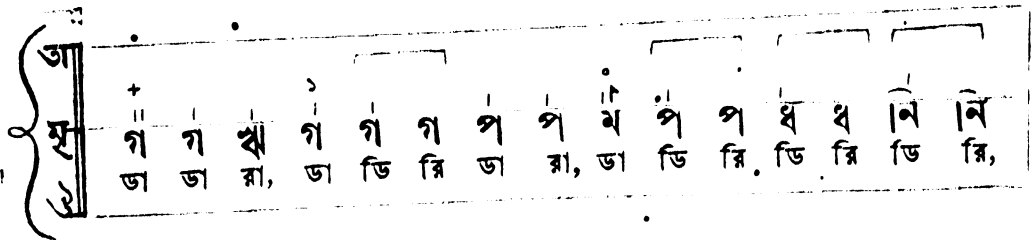 + ১ ০
গ গ ঋ গ গ গ প প ম প প ধ ধ নি নি
ডা ডা রা, ডা ডি রি ডা রা, ডা ডি রি ডি রি ডি রি,